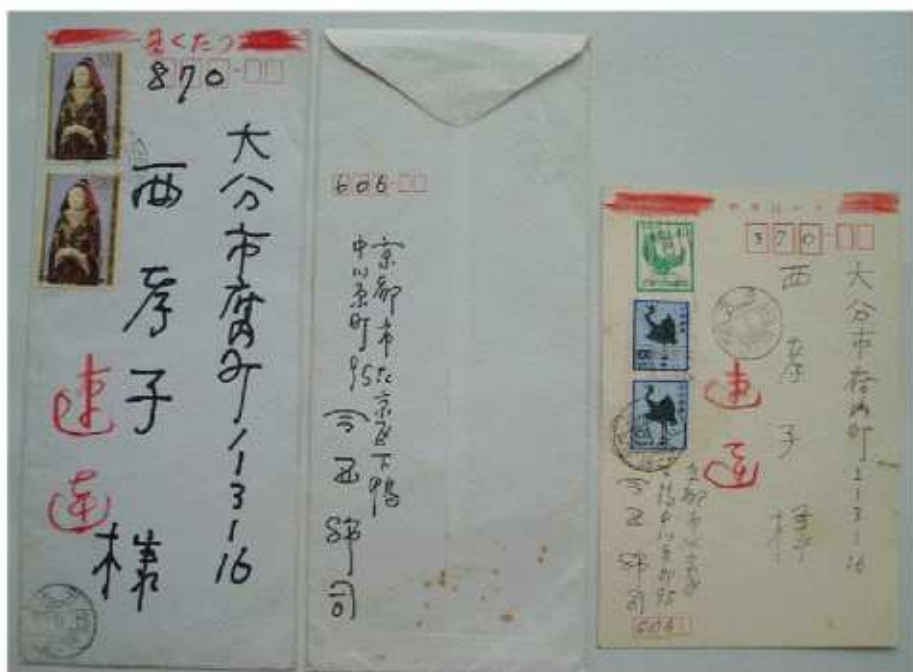 そくたつ
870
大分市府内町1-3-16
西 孝子 様
速達
606
京都市左京区下鴨
中川原町95
今西錦司
870
大分市府内町1-3-16
西 孝子 様
速達
京都市左京区
下鴨中川原町95
今西錦司
606